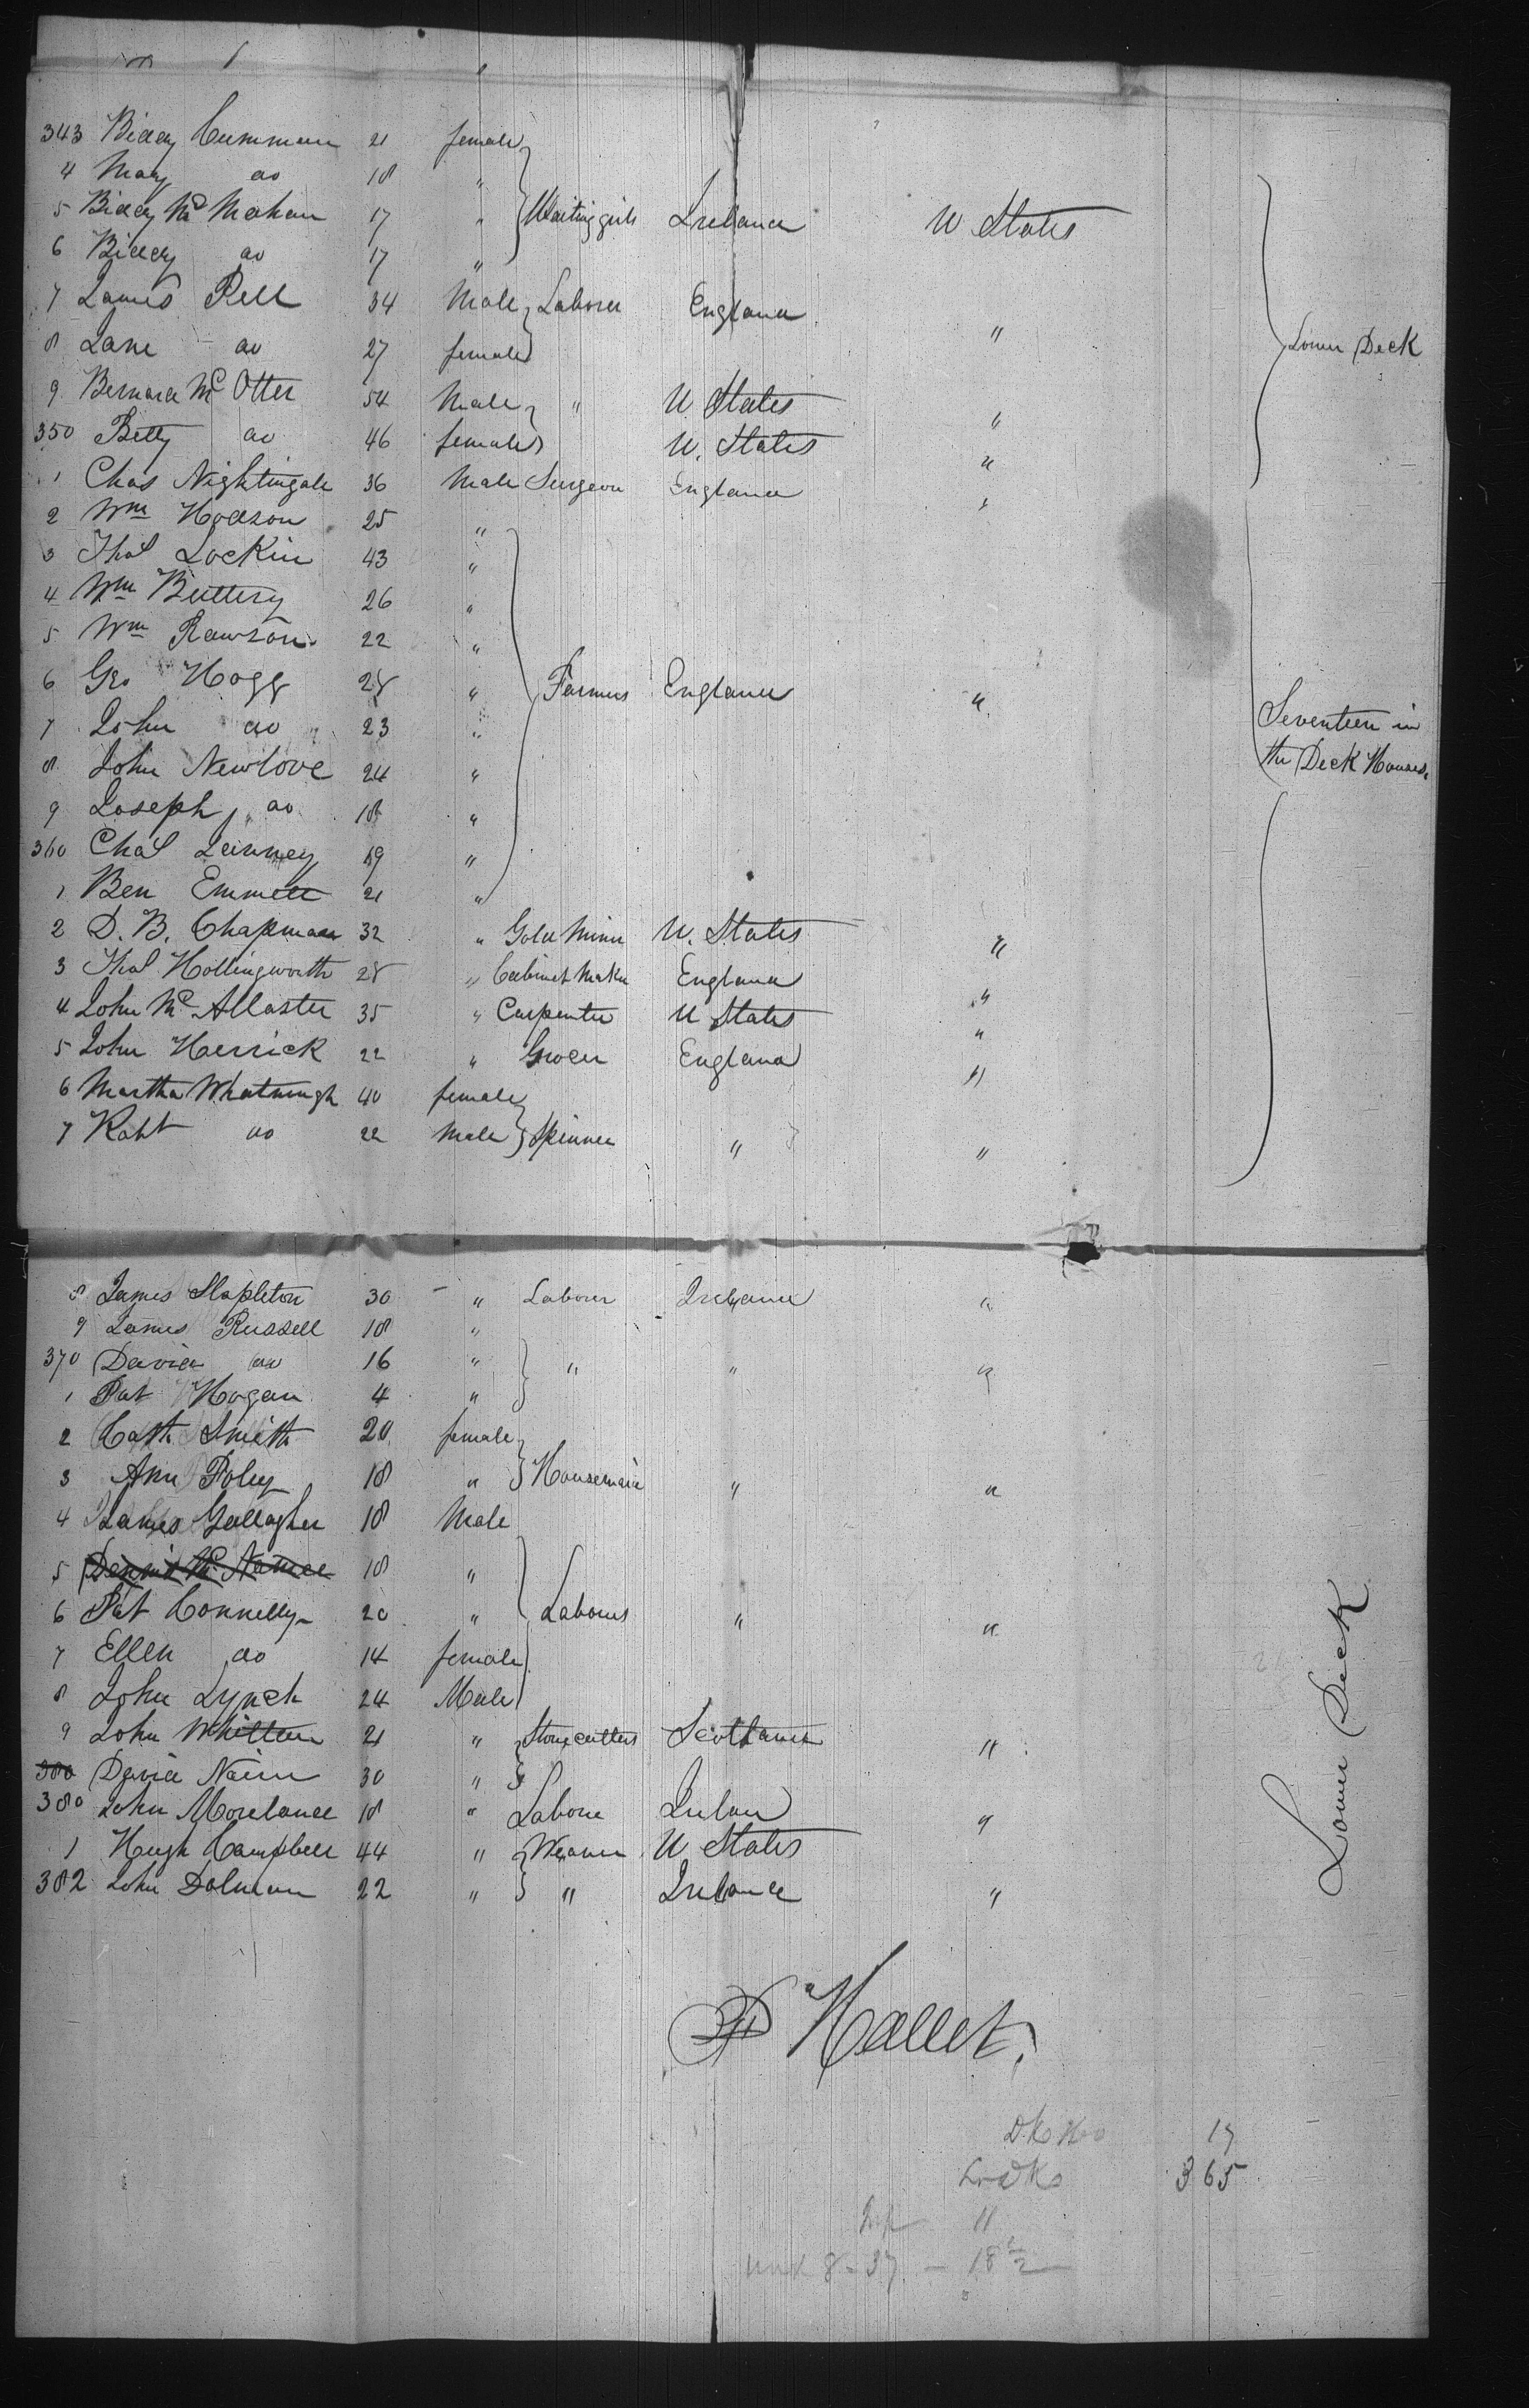 343 Biddy Cummman 21 female
4 Mary do 18 "
5 Biddy Mc Mahan 17 " Waiting girls Ireland U States
6 Biddy do 17 "
7 James Pell 34 Male Laborer England "
8 Jane do 27 female
Lower Deck
9 Bernard Mc Otter 54 Male " U. States "
350 Betty do 46 female U. States "
1 Chas Nightingale 36 Male Surgeon England "
2 Wm Hodson 25 "
3 Thos Lockin 43 "
4 Wm Buttery 26 "
5 Wm Rawson 22 "
6 Geo Hogg 28 " Farmers England "
7 John do 23 "
Seventeen in
the Deck Houses.
8 John Newlove 24 "
9 Joseph do 18 "
360 Chas Linney 19 "
1 Ben Emmett 21 "
2 D. B. Chapman 32 " Gold Miner U. States "
3 Thos Hollingworth 28 " Cabinet Maker England "
4 John Mc Allaster 35 " Carpenter U States "
5 John Herrick 22 " Grocer England "
6 Martha Whatmugh 40 female
7 Robt do 22 Male Spinner " "
8 James Stapleton 30 " Laborer Ireland "
9 James Russell 18 "
370 David do 16 " " " "
1 Pat Hogan 4 "
2 Cath Smith 20 female
3 Ann Foley 18 " Housemaid " "
4 James Gallagher 18 Male
5 Dennis Mc Namee 18 "
6 Pat Connelly 20 " Laborers " "
7 Ellen do 14 female
8 John Lynch 24 Male
Lower Deck
9 John Whitten 21 " Stonecutters Scotland "
380 David Nairn 30 "
380 John Moreland 18 " Labore Irelan "
1 Hugh Campbell 44 " Weaver U States
382 John Dolman 22 " " Ireland "
Hallet.
Dk Ho 17
Lr dks 365
11
8 - 37 - 18 1/2